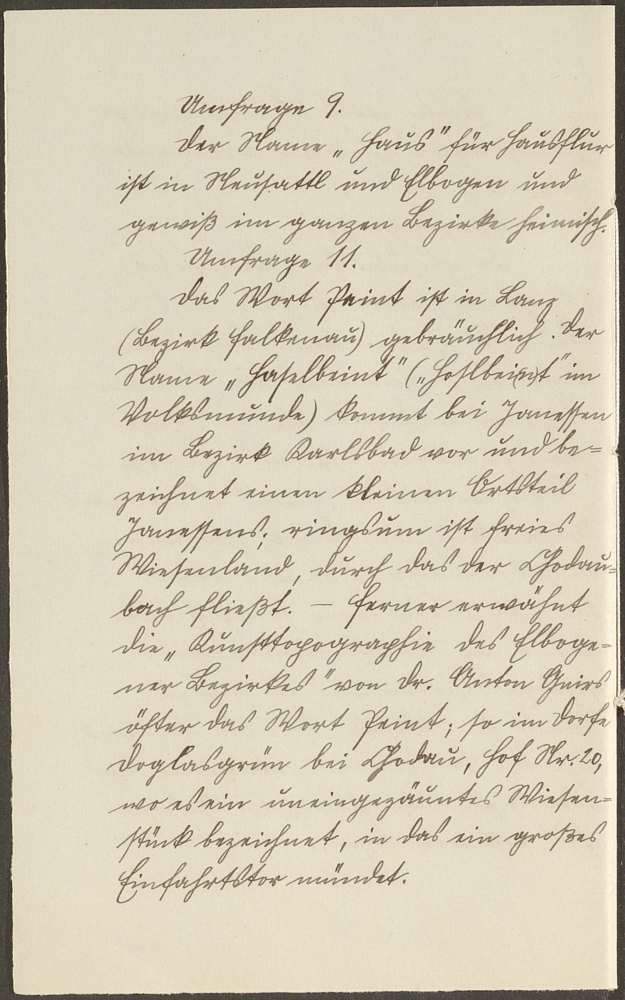 Umfrage 9.
Der Name „Haus" für Hausflur
ist in Neusattl und Elbogen und
gewiß im ganzen Bezirke heimisch.
Umfrage 11.
Das Wort Peint ist in Lanz
(Bezirk Falkenau) gebräuchlich. Der
Name „Haselbeint" („Hoslbeint" im
Volksmunde) kommt bei Janessen
im Bezirk Karlsbad vor und be=
zeichnet einen kleinen Ortsteil
Janessens; ringsum ist freies
Wiesenland, durch das der Chodau=
bach fließt. – Ferner erwähnt
die „Kunsttopographie des Elboge=
ner Bezirkes" von Dr. Anton Gnirs
öfter das Wort Peint; so im Dorfe
Doglasgrün bei Chodau, Hof Nr. 20,
wo es ein uneingezäuntes Wiesen=
stück bezeichnet, in das ein großes
Einfahrtstor mündet.